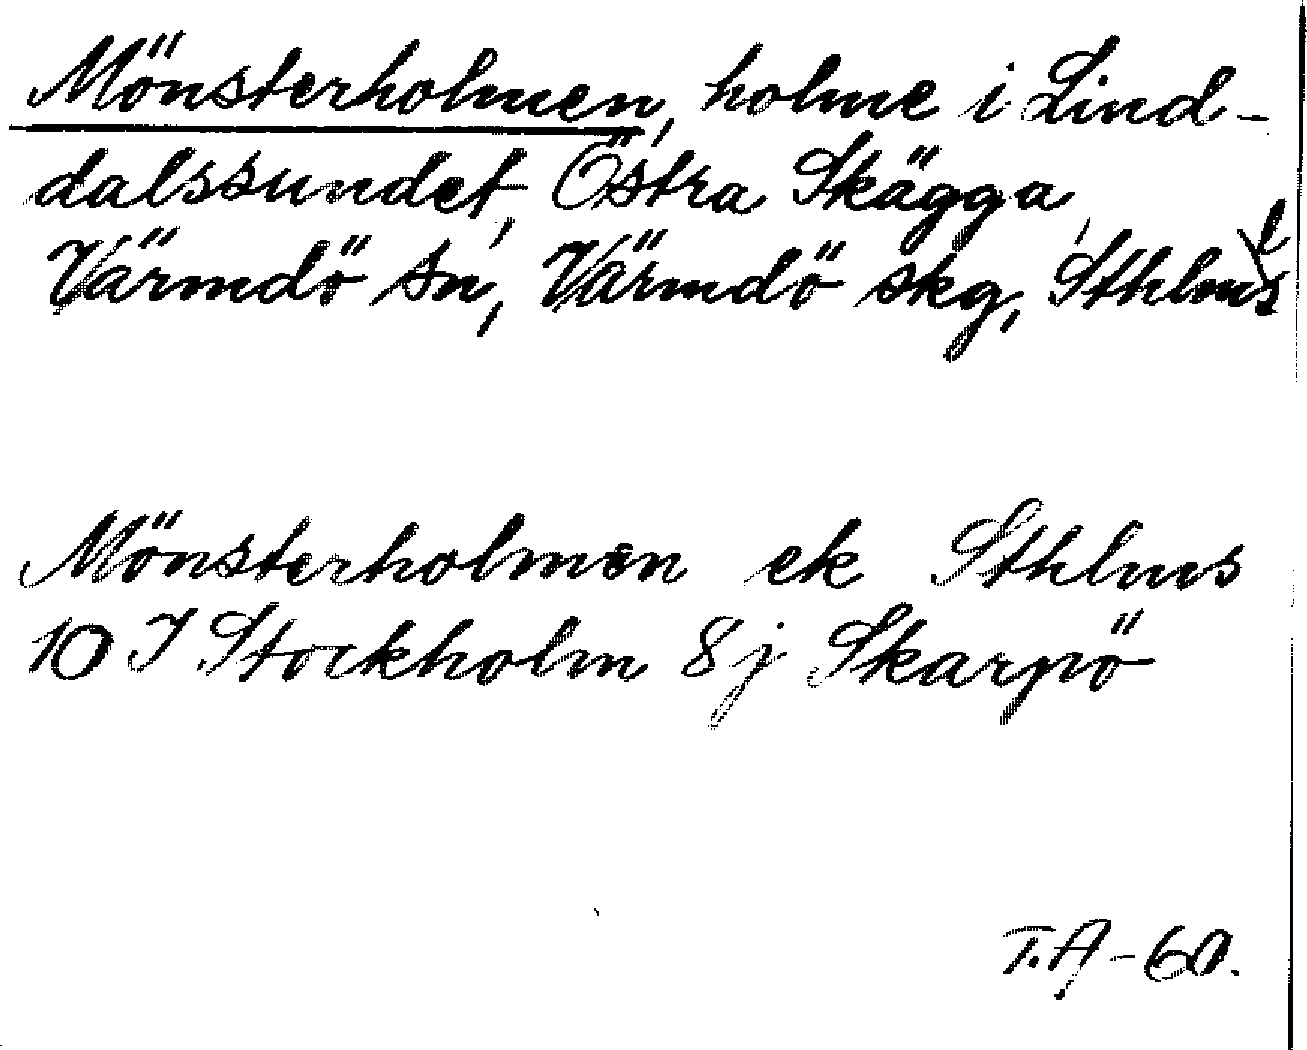 Mönsterholmen, holme i Lind-
dalssundet, Östra Skägga,
Värmdö sn, Värmdö skg, Sthlms l
Mönsterholmen ek Sthlms
10 I Stockholm 8j Skarpö
T.A-60.